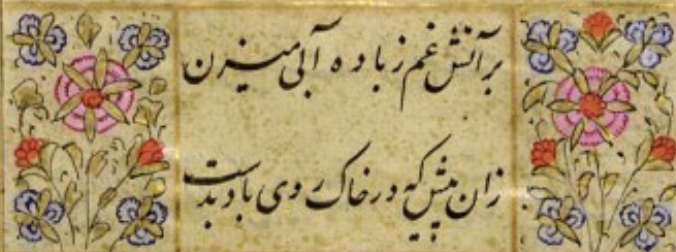 بر آتش غم ز باده آبی میزن
زان پیش که در خاک روی باد بدست